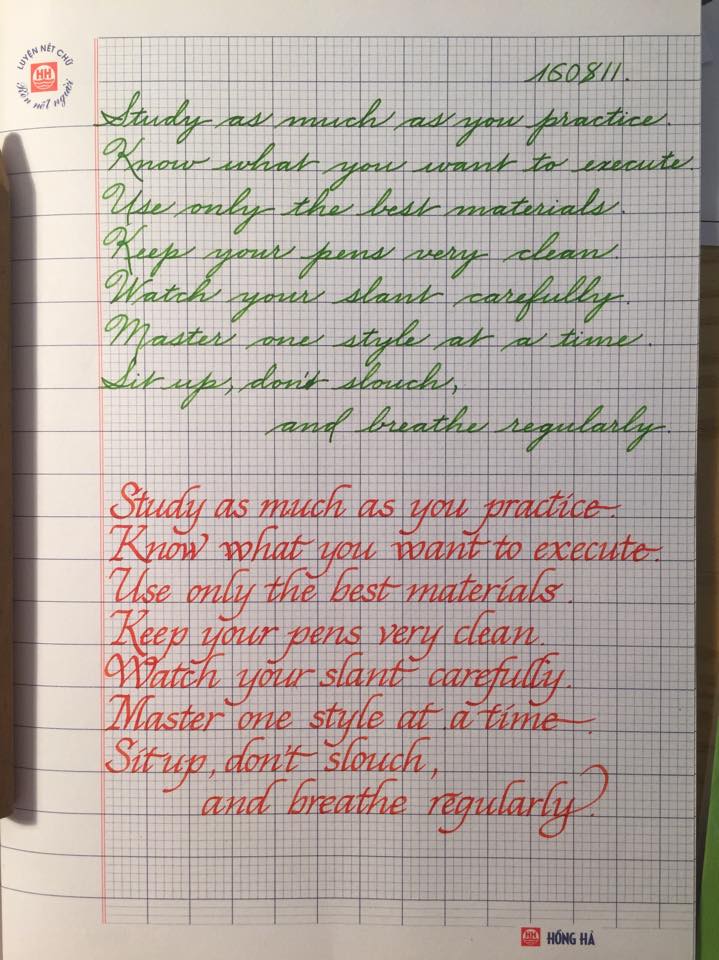 LUYỆN NÉT CHỮ
HH
Rèn nết người
160811.
Study as much as you practice.
Know what you want to execute.
Use only the best materials.
Keep your pens very clean.
Watch your slant carefully.
Master one style at a time.
Sit up, don't slouch,
and breathe regularly.
Study as much as you practice.
Know what you want to execute.
Use only the best materials.
Keep your pens very clean.
Watch your slant carefully.
Master one style at a time.
Sit up, don't slouch,
and breathe regularly.
HH HỒNG HÀ